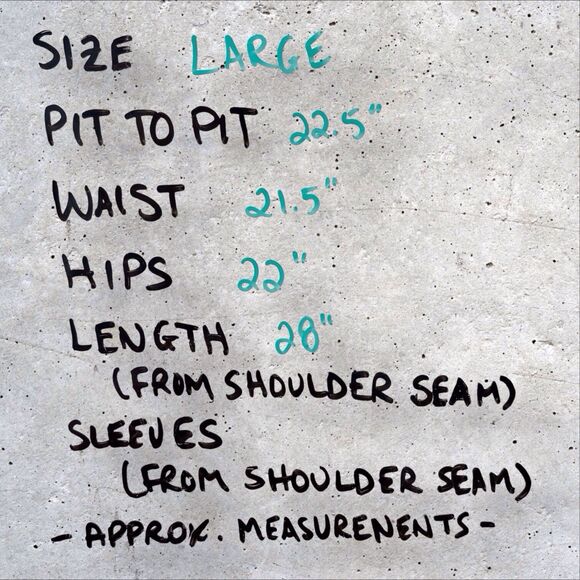 SIZE LARGE
PIT TO PIT 22.5"
WAIST 21.5"
HIPS 22"
LENGTH 28"
(FROM SHOULDER SEAM)
SLEEVES
(FROM SHOULDER SEAM)
- APPROX. MEASURENENTS -